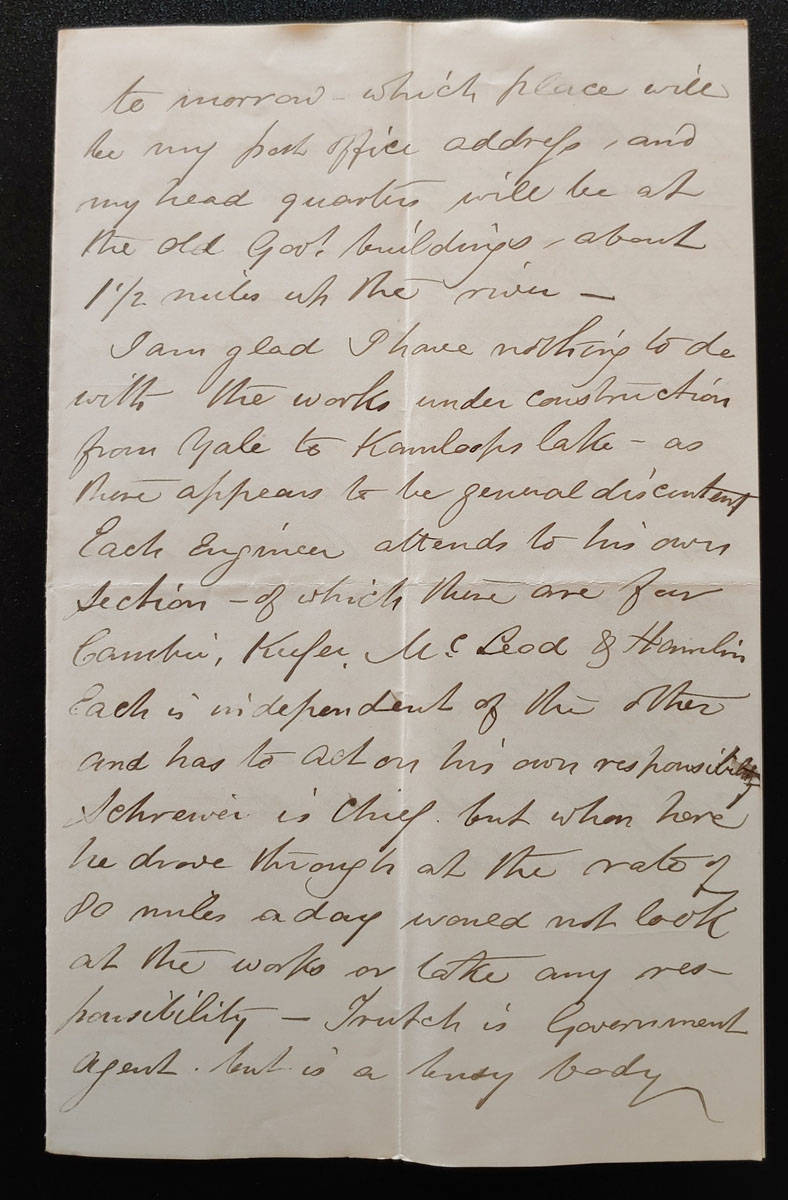 to morrow - which place will
be my post office address, and
my head quarters will be at
the old Govt. buildings, about
1 1/2 miles up the river -
I am glad I have nothing to do
with the works under construction
from Yale to Kamloops lake - as
there appears to be general discontent
Each Engineer attends to his own
section - of which there are four
Cambie, Keefer, McLeod & Hamlin
Each is independent of the other
and has to act on his own responsibility
Schreiber is Chief. but when here
he drove through at the rate of
80 miles a day would not look
at the works or take any res-
ponsibility - Trutch is Government
Agent. but is a busy body